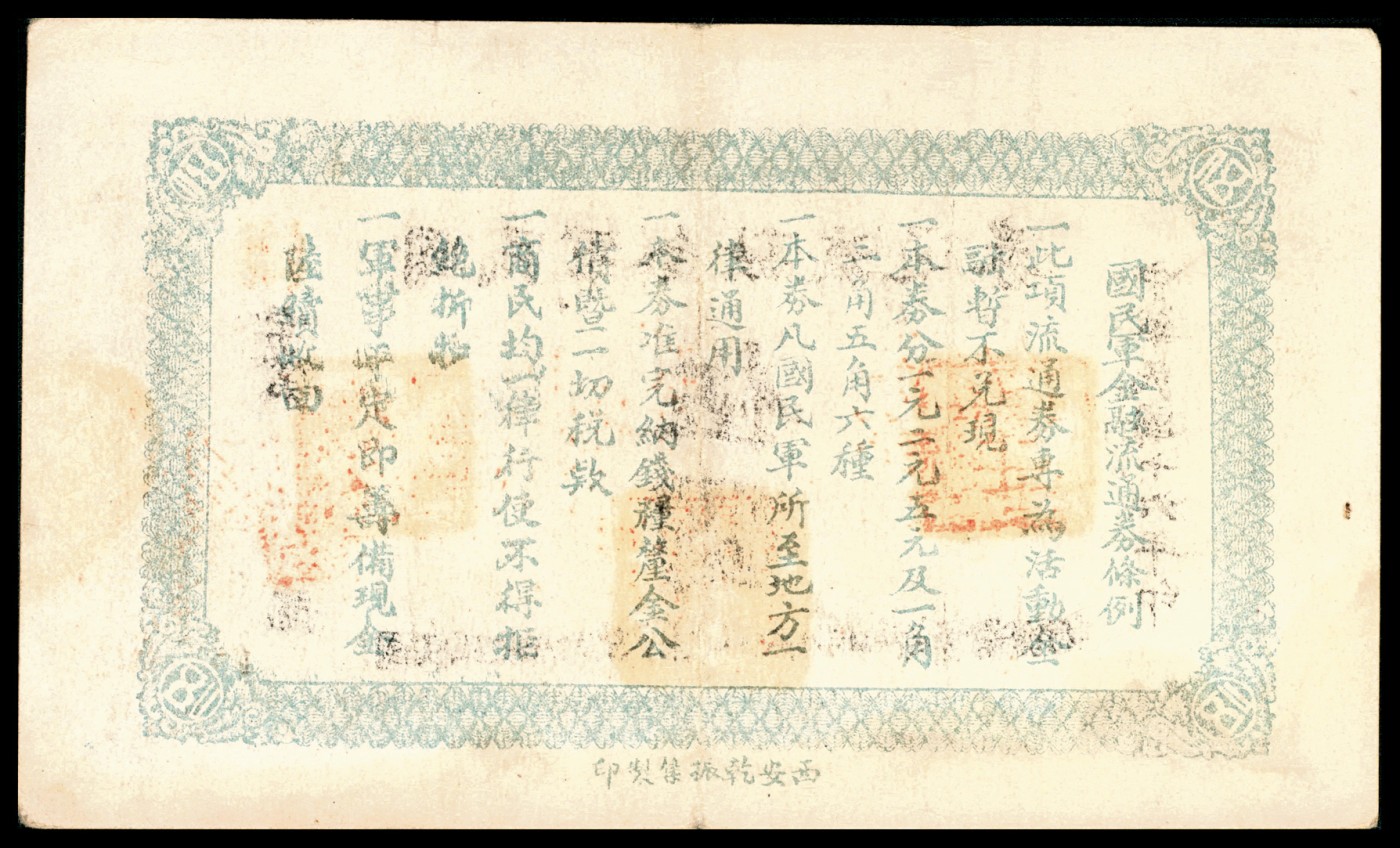 國民軍金融流通券條例
一此項流通券專為活動金
融暫不兌現
一本券分一元二元五元及一角
二角五角六種
一本券凡國民軍所至地方一
律通用
一本券准完納錢糧釐金公
債暨一切稅款
一商民均一律行使不得拒
絶折扣
一軍事平定即籌備現金
陸續收回
西安乾振集製印